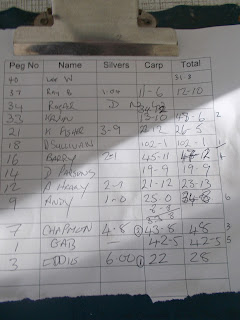 Peg No Name Silvers Carp Total
40 Lee W 31-3
37 Roy B 1-04 11-6 12-10
34 Roger D N
33 Kevin 13-10 48-6 2
21 K Asher 3-9 22-12 26-5
18 R Sullivan 102-1 102-1 1
16 Barry 2-1 45-11 47-12 4
14 D Parsons 19-9 19-9
12 A Harry 2-1 21-12 23-13
9 Andy 1-0 25-0 34-8 6
7 Chapman 4-8 43-8 48 3
1 Gab — 42-5 42-5 5
3 Eddie 6.00 22 28